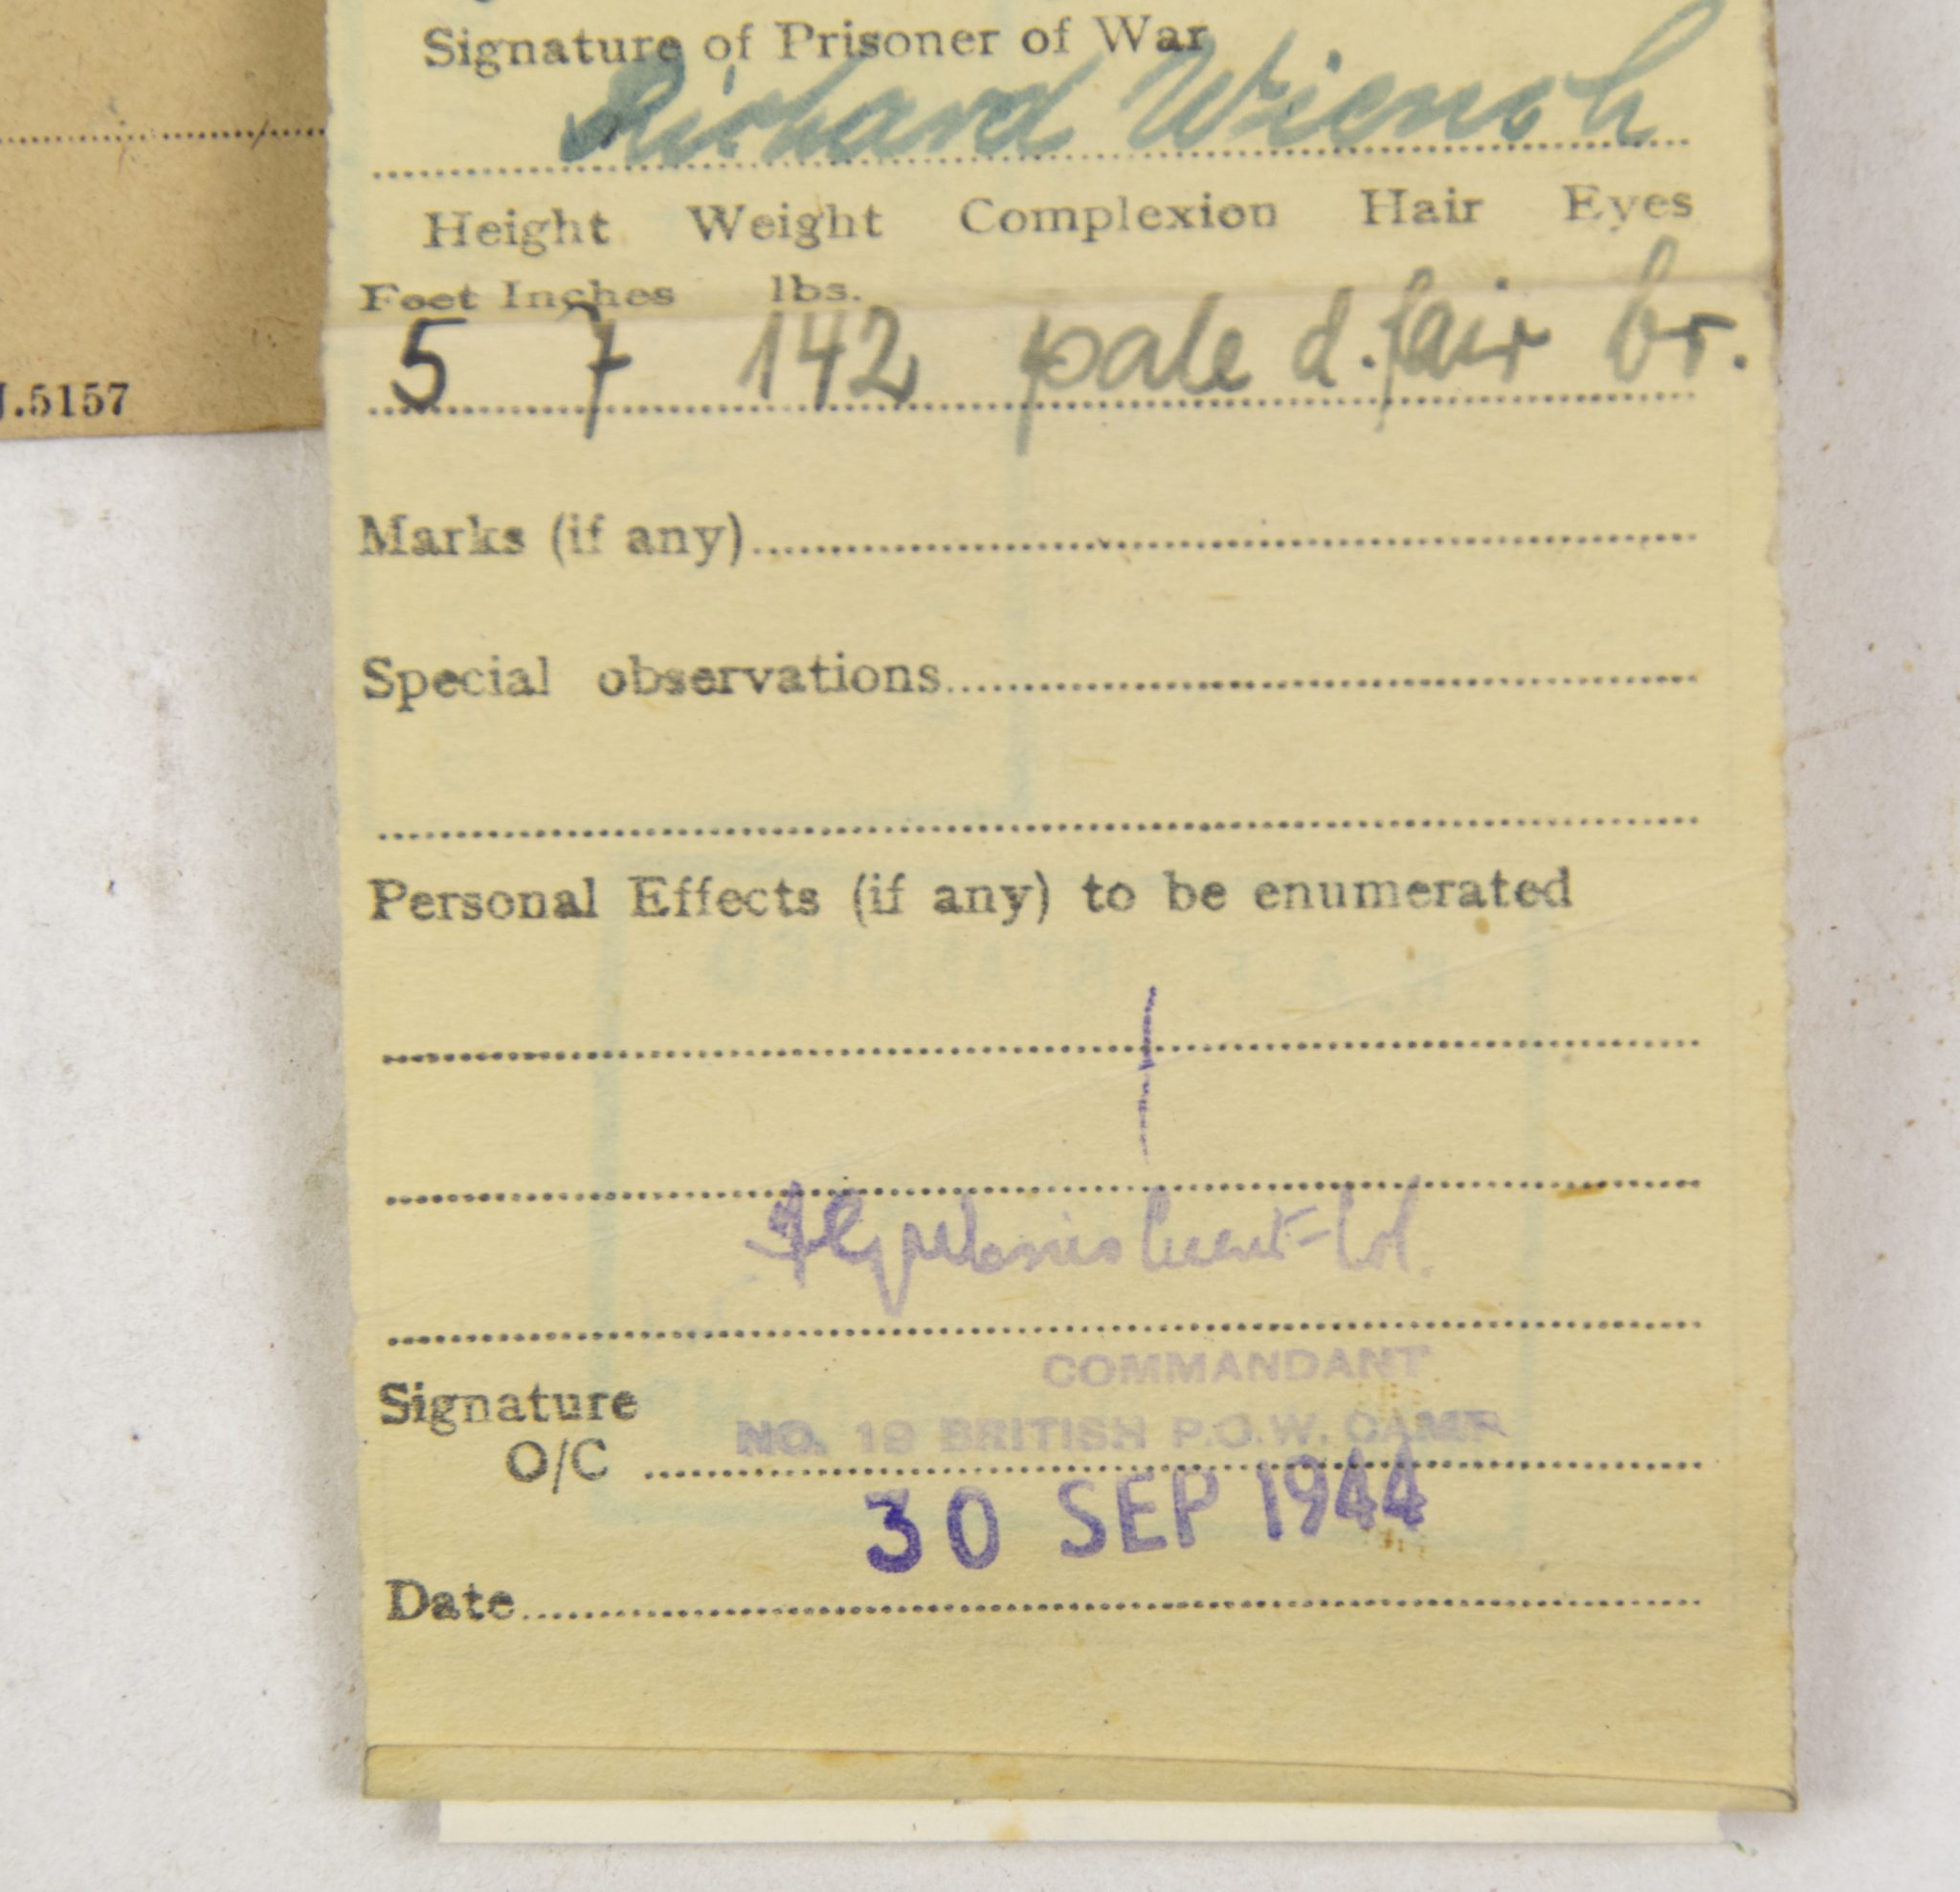 Signature of Prisoner of War
Richard Wiensh
Height Weight Complexion Hair Eyes
Feet Inches lbs.
5 7 142 pale d. fair br.
J.5157
Marks (if any)
Special observations
Personal Effects (if any) to be enumerated
COMMANDANT
Signature
NO. 19 BRITISH P.O.W. CAMP
O/C
30 SEP 1944
Date